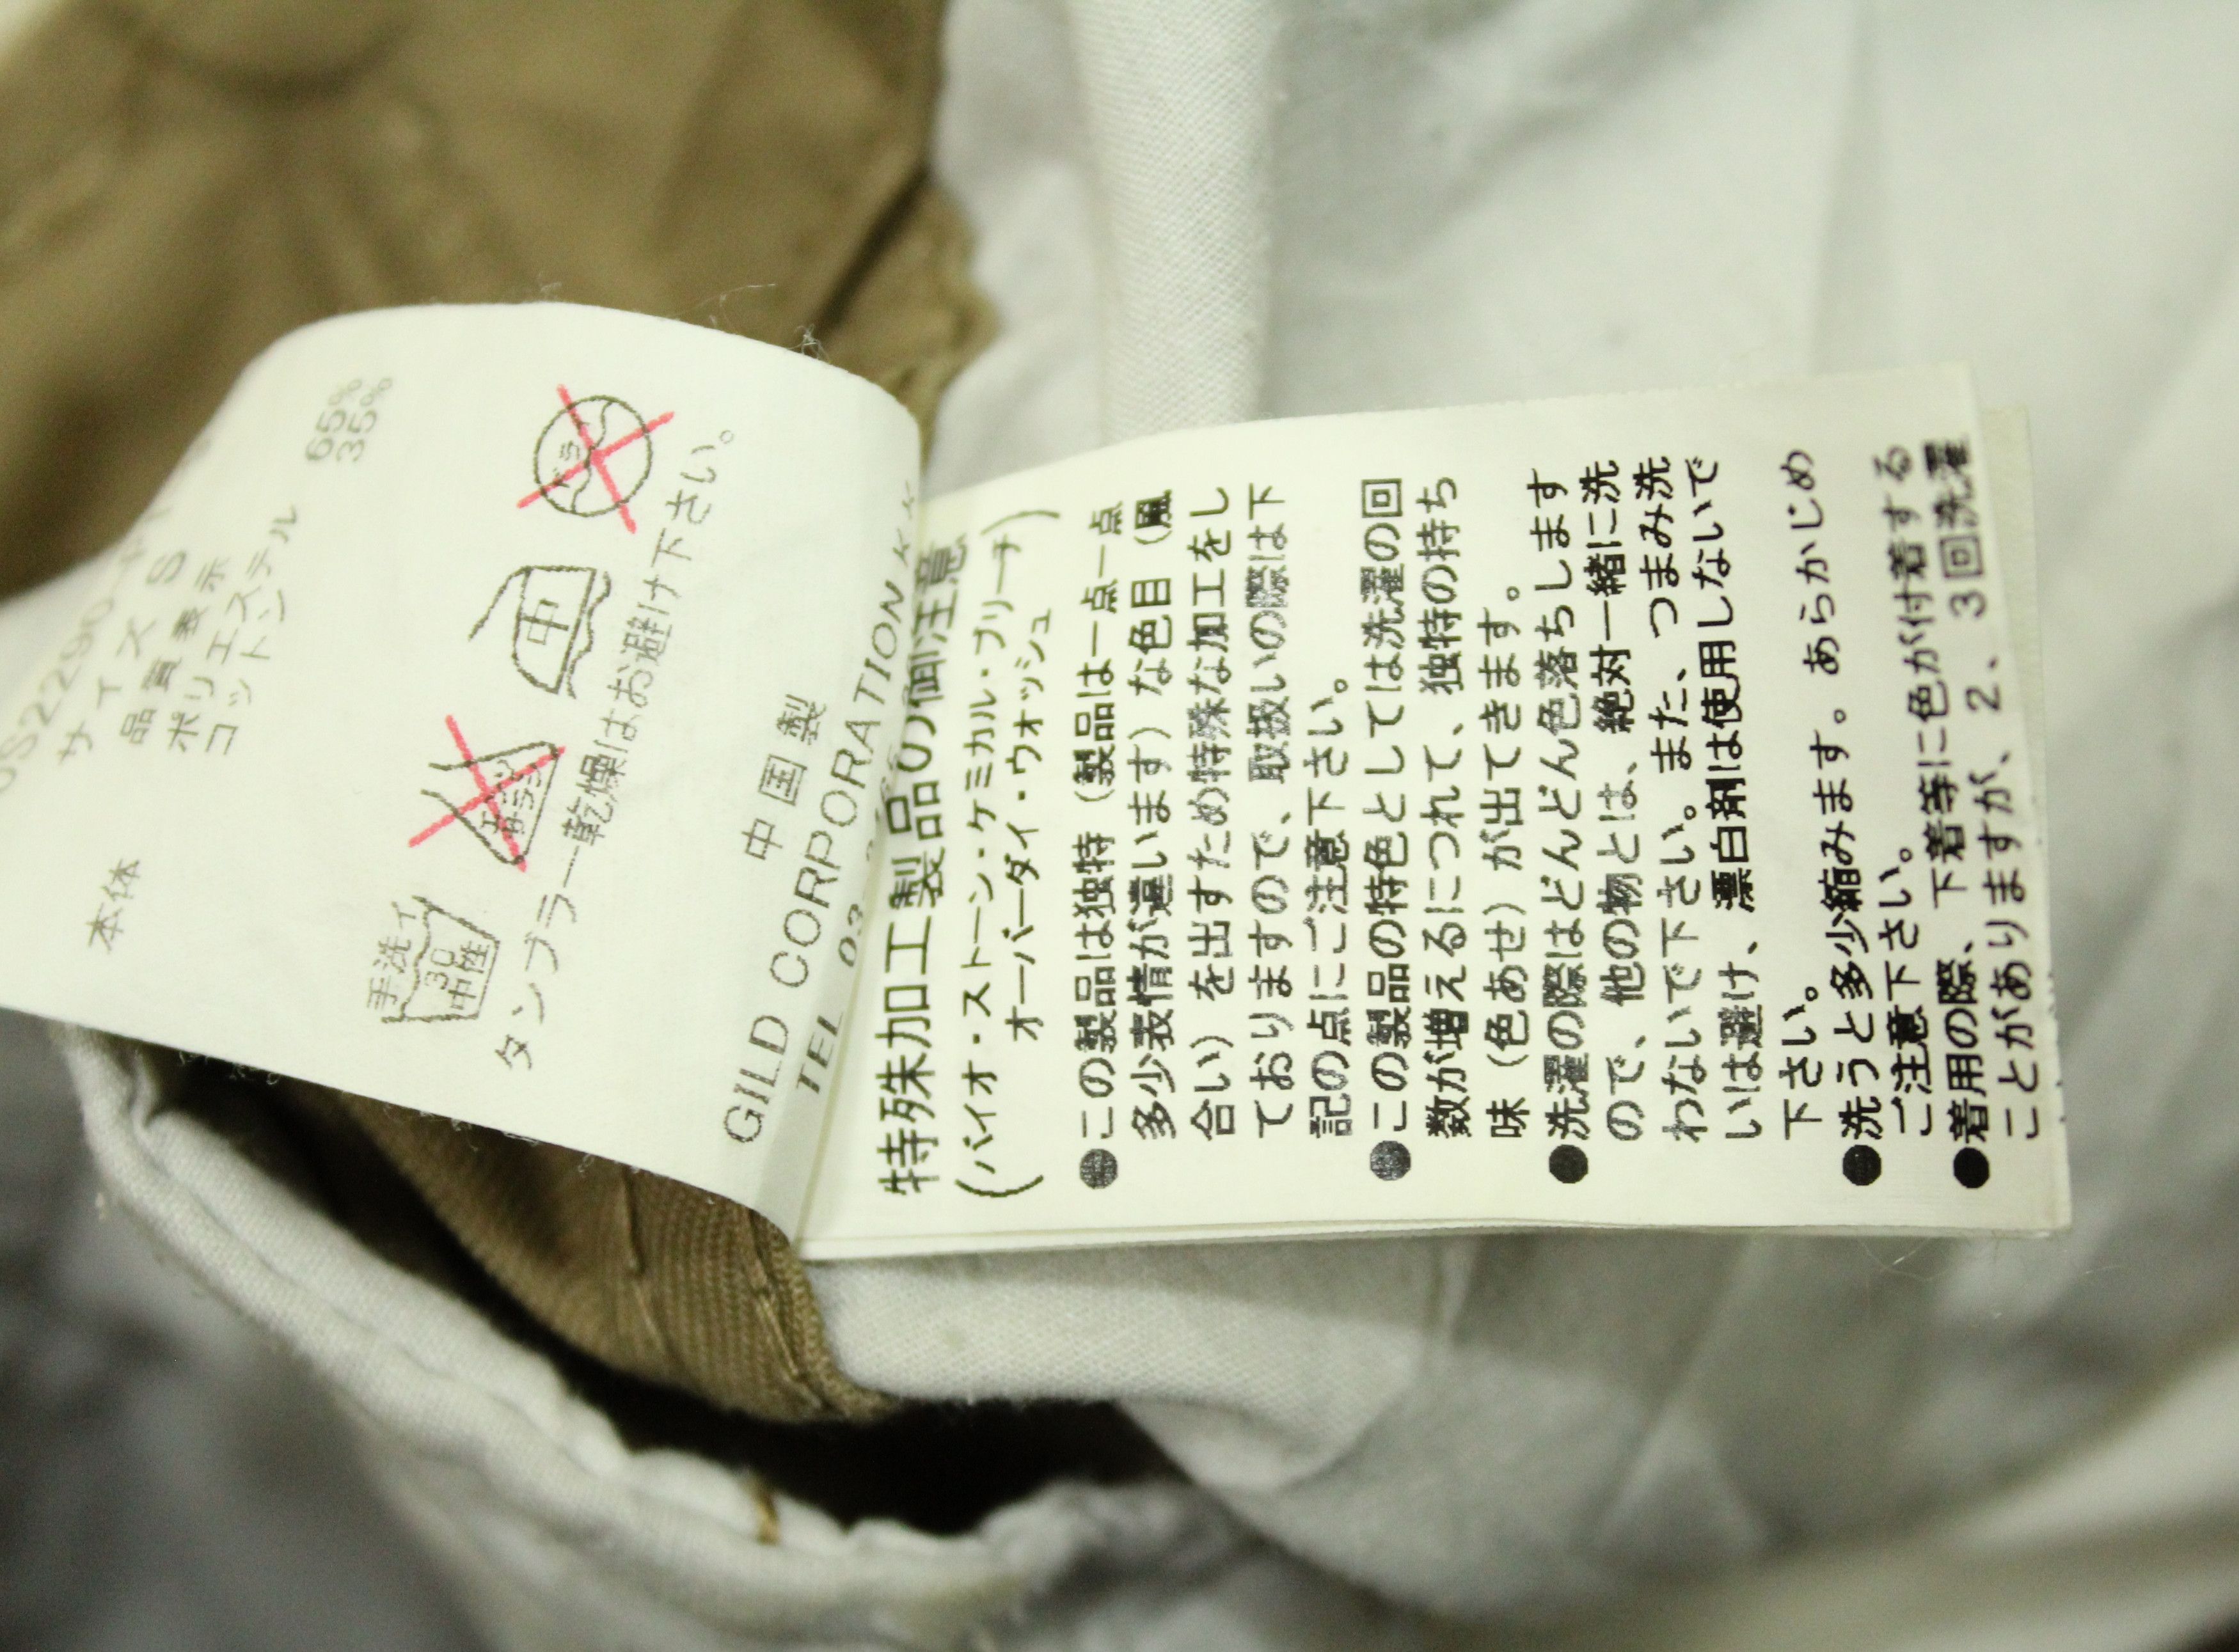 サイズ S
品質表示
本体 ポリエステル 65%
コットン 35%
手洗イ
30
中性
エンソ
サラシ
中
ドライ
タンブラー乾燥はお避け下さい。
中国製
GILD CORPORATION K.K
TEL 03
特殊加工製品の御注意
(バイオ・ストーン・ケミカル・ブリーチ
オーバーダイ・ウォッシュ)
●この製品は独特（製品は一点一点
多少表情が違います）な色目（風
合い）を出すため特殊な加工をし
ておりますので、取扱いの際は下
記の点にご注意下さい。
●この製品の特色としては洗濯の回
数が増えるにつれて、独特の持ち
味（色あせ）が出てきます。
●洗濯の際はどんどん色落ちします
ので、他の物とは、絶対一緒に洗
わないで下さい。また、つまみ洗
いは避け、漂白剤は使用しないで
下さい。
●洗うと多少縮みます。あらかじめ
ご注意下さい。
●着用の際、下着等に色が付着する
ことがありますが、２、３回洗濯